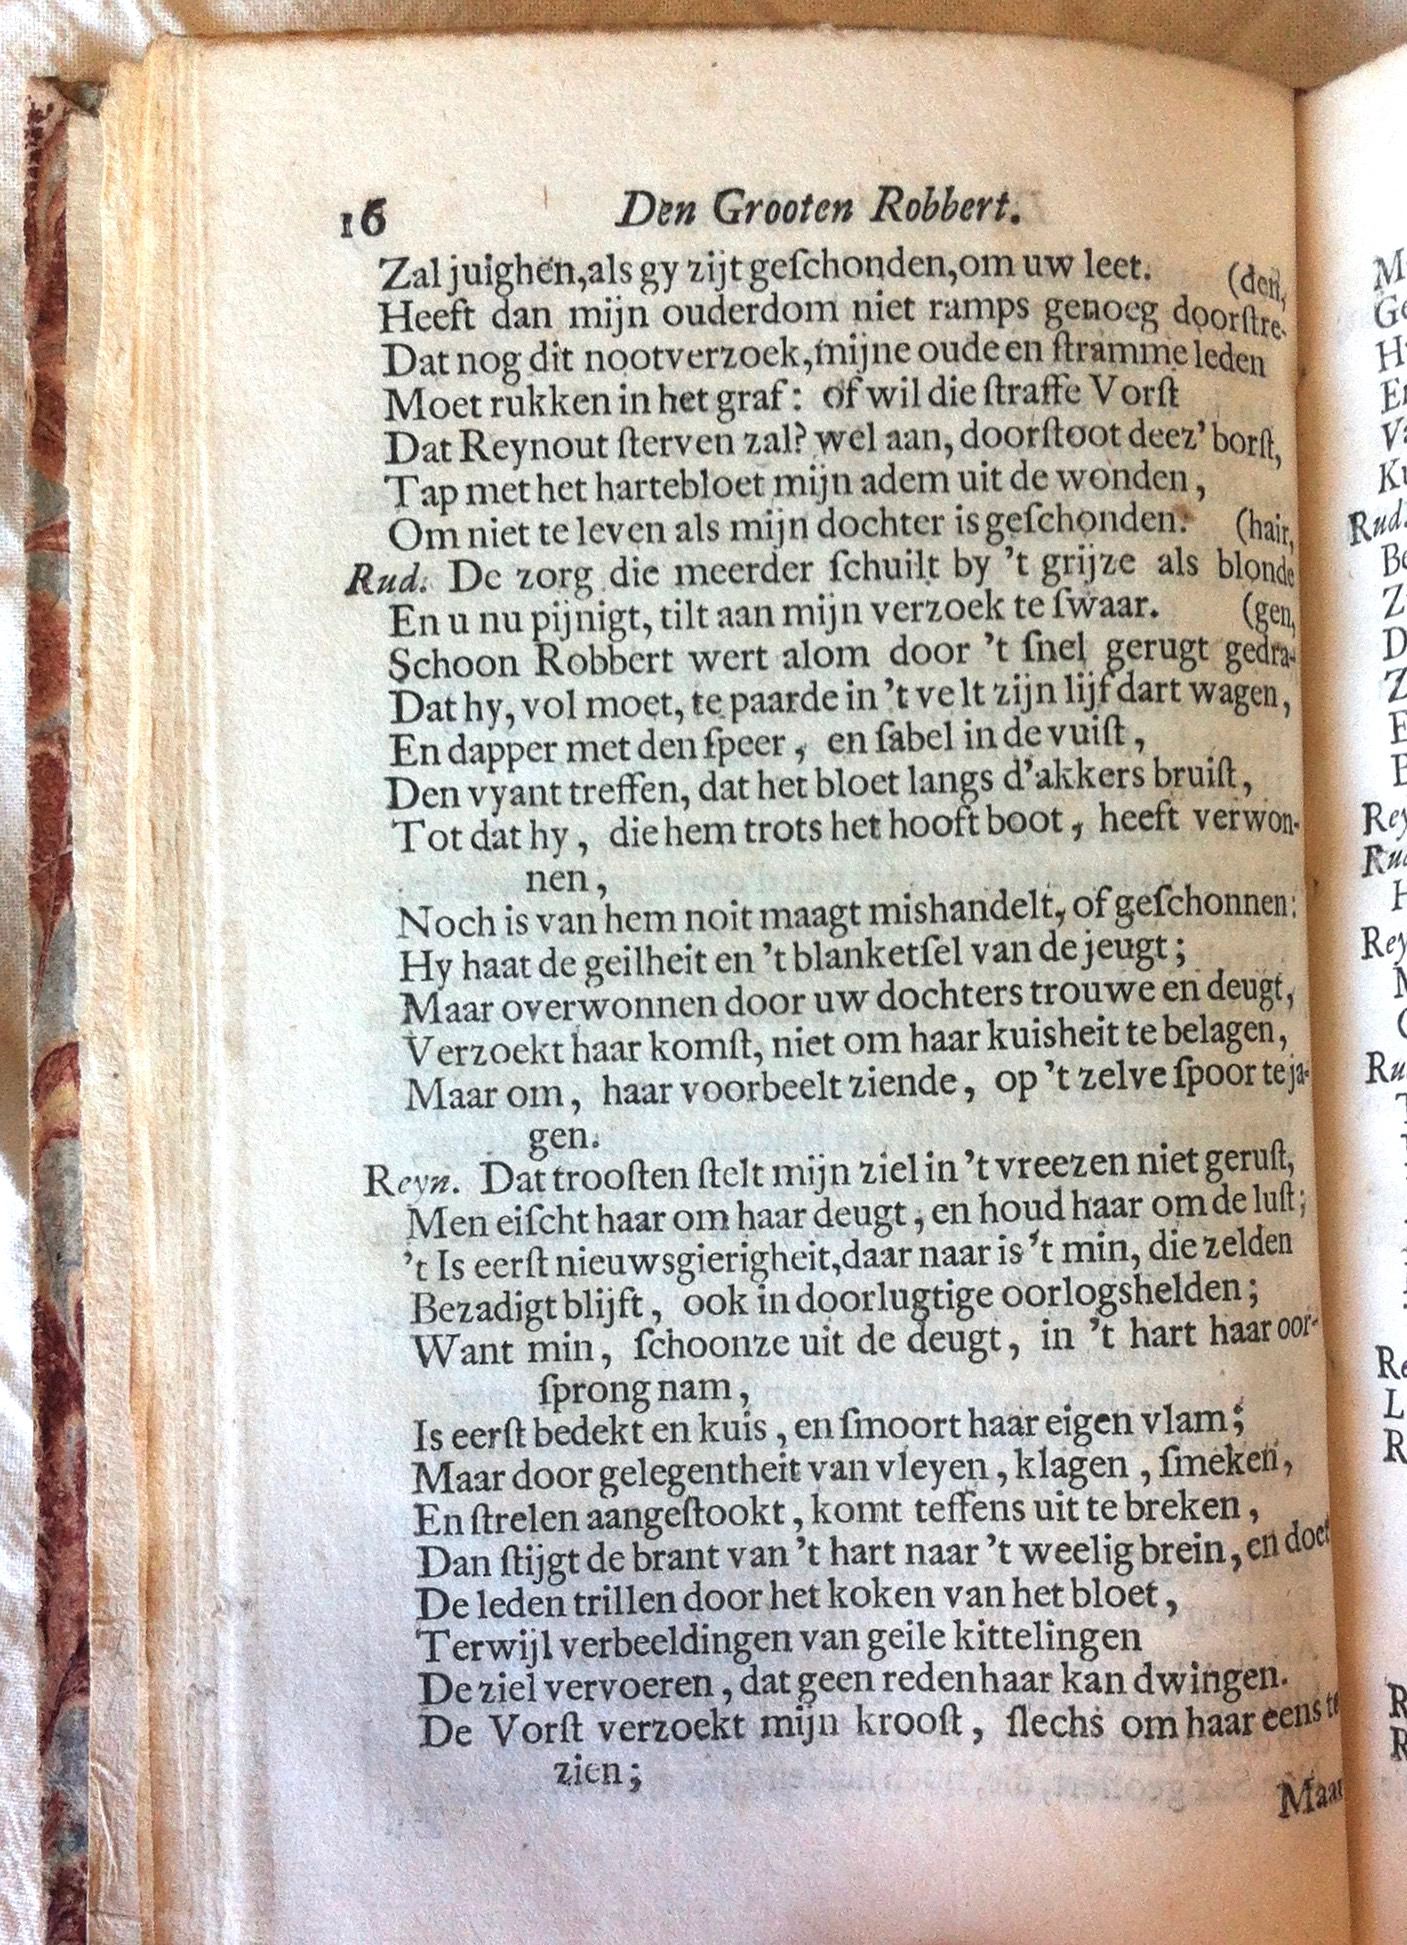 16 Den Grooten Robbert.
Zal juighen, als gy zijt geſchonden, om uw leet. (den,
Heeft dan mijn ouderdom niet ramps genoeg doorſtre-
Dat nog dit nootverzoek, mijne oude en ſtramme leden
Moet rukken in het graf: of wil die ſtraffe Vorſt
Dat Reynout ſterven zal? wel aan, doorſtoot deez' borſt,
Tap met het hartebloet mijn adem uit de wonden,
Om niet te leven als mijn dochter is geſchonden. (hair,
Rud. De zorg die meerder ſchuilt by 't grijze als blonde
En u nu pijnigt, tilt aan mijn verzoek te ſwaar. (gen,
Schoon Robbert wert alom door 't ſnel gerugt gedra-
Dat hy, vol moet, te paarde in 't velt zijn lijf dart wagen,
En dapper met den ſpeer, en ſabel in de vuiſt,
Den vyant treffen, dat het bloet langs d'akkers bruiſt,
Tot dat hy, die hem trots het hooft boot, heeft verwon-
nen,
Noch is van hem noit maagt mishandelt, of geſchonnen:
Hy haat de geilheit en 't blanketſel van de jeugt;
Maar overwonnen door uw dochters trouwe en deugt,
Verzoekt haar komſt, niet om haar kuisheit te belagen,
Maar om, haar voorbeelt ziende, op 't zelve ſpoor te ja-
gen.
Reyn. Dat trooſten ſtelt mijn ziel in 't vreezen niet geruſt,
Men eiſcht haar om haar deugt, en houd haar om de luſt;
't Is eerſt nieuwsgierigheit, daar naar is 't min, die zelden
Bezadigt blijft, ook in doorlugtige oorlogshelden;
Want min, ſchoonze uit de deugt, in 't hart haar oor-
ſprong nam,
Is eerſt bedekt en kuis, en ſmoort haar eigen vlam;
Maar door gelegentheit van vleyen, klagen, ſmeken,
En ſtrelen aangeſtookt, komt teffens uit te breken,
Dan ſtijgt de brant van 't hart naar 't weelig brein, en doet
De leden trillen door het koken van het bloet,
Terwijl verbeeldingen van geile kittelingen
De ziel vervoeren, dat geen reden haar kan dwingen.
De Vorſt verzoekt mijn krooſt, ſlechs om haar eens te
zien;
Maar